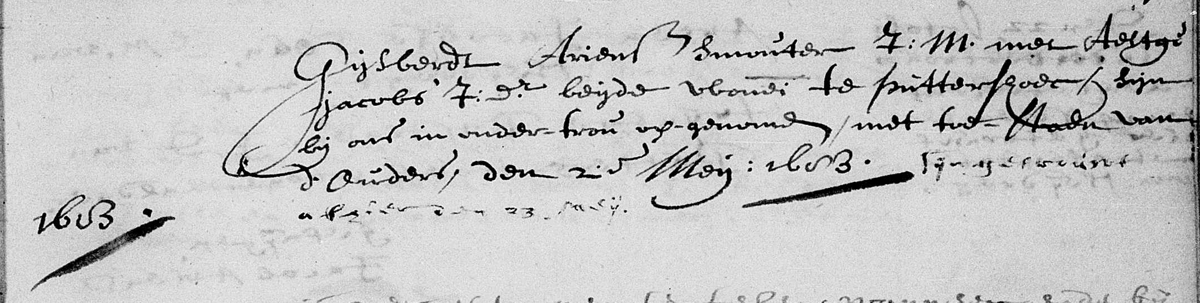 Gijsberdt Ariens Smouter J: M. met Aeltge
jacobs J: dr. beijde wonen te puttershoec, sijn
bij ons in onder-trou op-genomen, met toe-staen van
d'Ouders, den 2e Meij: 1683. sijn getrouwt
alhier den 23 Meij.
1683.